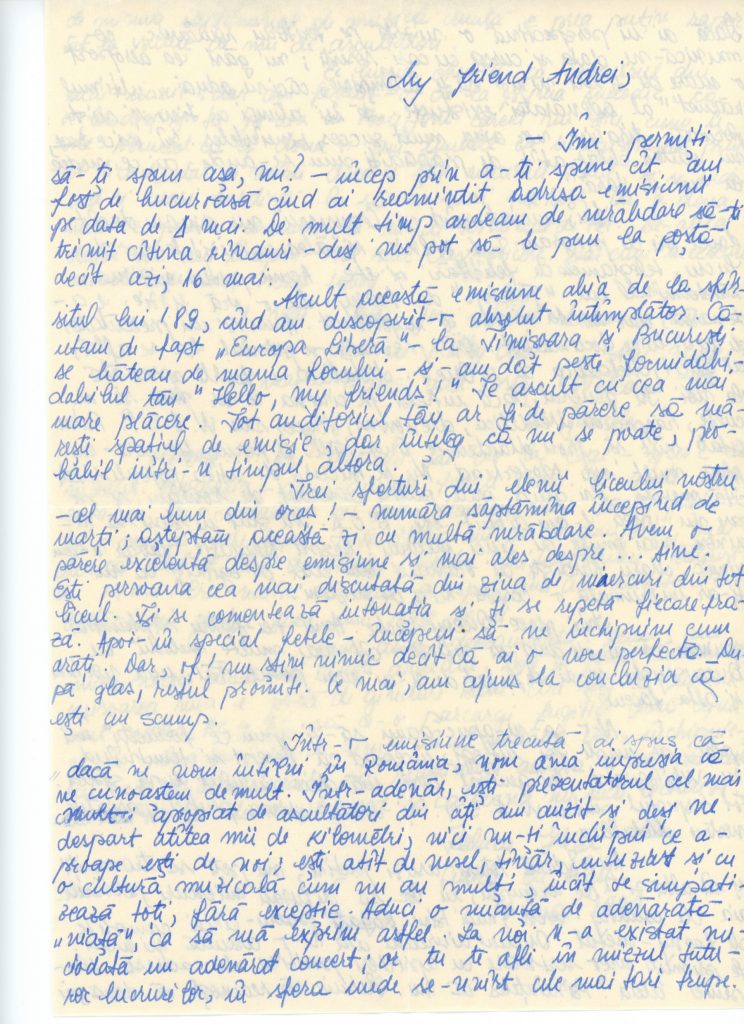 My friend Andrei,
– Îmi permiți
să-ți spun așa, nu? – încep prin a-ți spune cît am
fost de bucuroasă cînd ai reamintit adresa emisiunii
pe data de 1 mai. De mult timp ardeam de nerăbdare să-ți
trimit cîteva rînduri – deși nu pot să le pun la poștă
decît azi, 16 mai.
Ascult această emisiune abia de la sfîr-
șitul lui '89, cînd am descoperit-o absolut întîmplător. Că-
utam de fapt „Europa Liberă" – la Timișoara și București
se băteau de mama focului – și-am dat peste formidabi-
dabilul tău "Hello, my friends!" Te ascult cu cea mai
mare plăcere. Tot auditoriul tău ar fi de părere să mă-
rești spațiul de emisie, dar înțeleg că nu se poate, pro-
babil intri-n timpul altora.
Trei sferturi din elevii liceului nostru
– cel mai bun din oraș! – număra săptămîna începînd de
marți; așteptăm această zi cu multă nerăbdare. Avem o
părere excelentă despre emisiune și mai ales despre ... tine.
Ești persoana cea mai discutată din ziua de miercuri din tot
liceul. Ți se comentează intonația și ți se repetă fiecare fra-
ză. Apoi – în special fetele – începem să ne închipuim cum
arăți. Dar, of! nu știm nimic decît că ai o voce perfectă. Du-
pă glas, restul promiți. Ce mai, am ajuns la concluzia că
ești un scump.
Într-o emisiune trecută, ai spus că
dacă ne vom întîlni în România, vom avea impresia că
ne cunoaștem demult. Într-adevăr, ești prezentatorul cel mai
apropiat de ascultători din cîți am auzit și deși ne
despart atîtea mii de kilometri, nici nu-ți închipui ce a-
proape ești de noi; ești atît de vesel, tînăr, entuziast și cu
o cultură muzicală cum nu au mulți, încît te simpati-
zează toți, fără excepție. Aduci o nuanță de adevărată
„viață", ca să mă exprim astfel. La noi n-a existat ni-
ciodată un adevărat concert; or tu te afli în miezul tutu-
ror lucrurilor, în sfera unde se-nvîrt cele mai tari trupe.